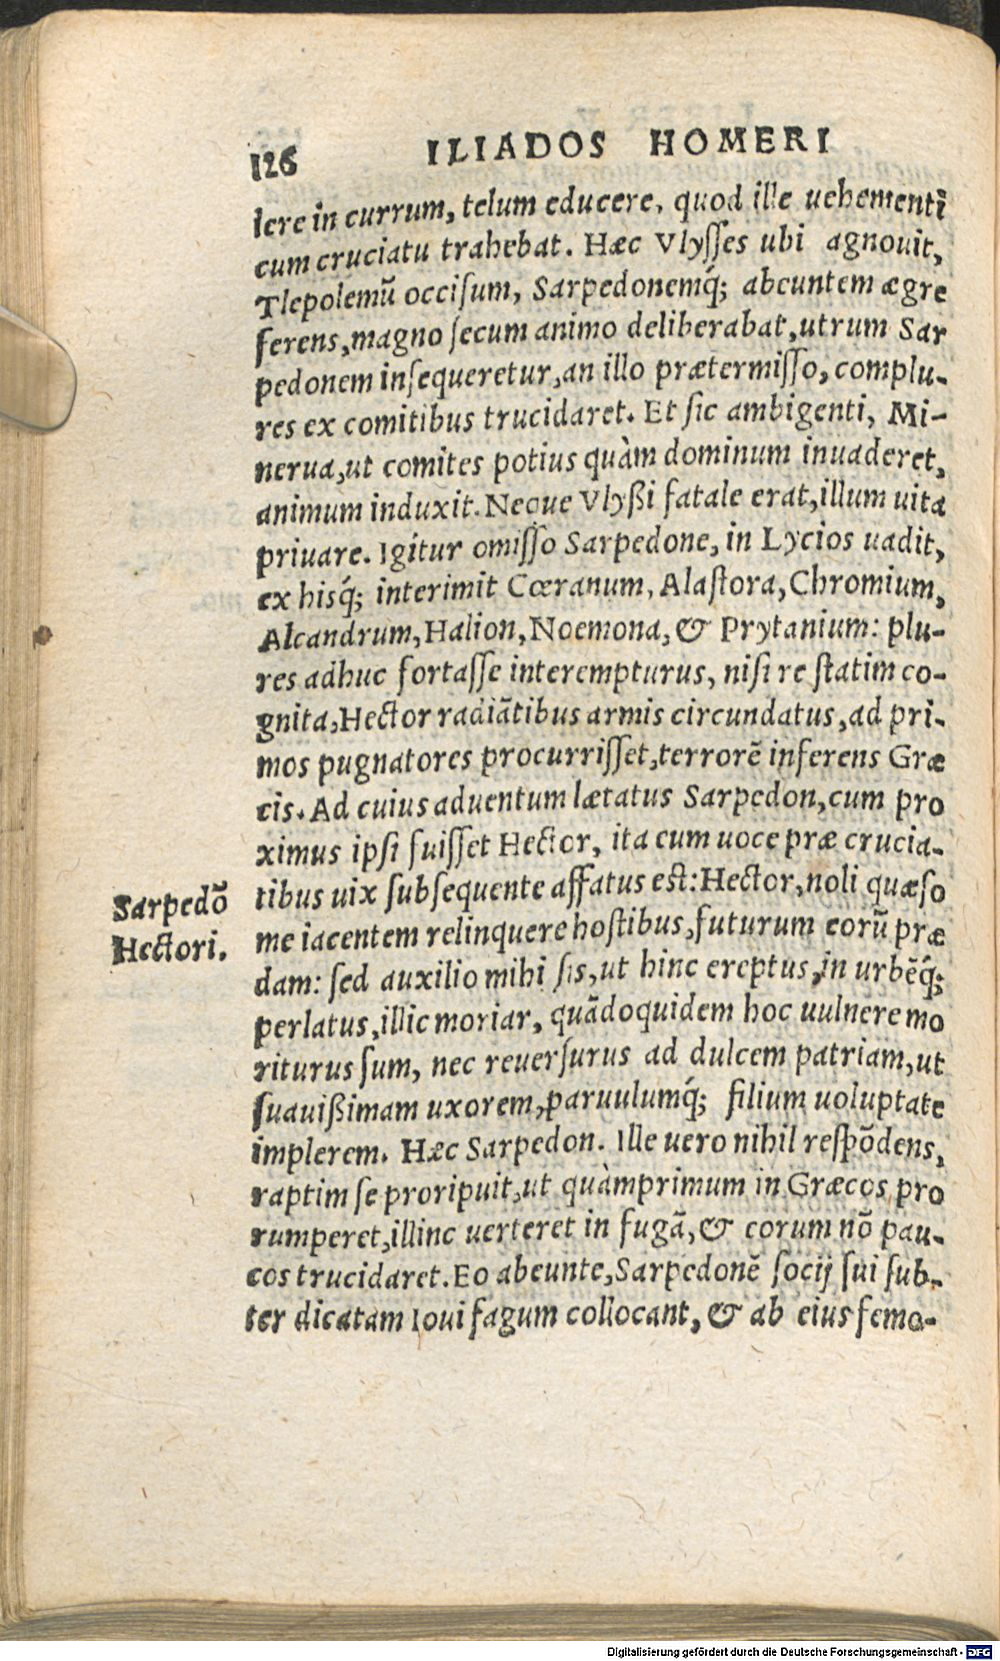 126 ILIADOS HOMERI
lere in currum, telum educere, quod ille uehementi
cum cruciatu trahebat. Hæc Vlyſſes ubi agnouit,
Tlepolemũ occiſum, Sarpedonemq́; abeuntem ægre
ferens, magno ſecum animo deliberabat, utrum Sar
pedonem inſequeretur, an illo prætermiſſo, complu-
res ex comitibus trucidaret. Et ſic ambigenti, Mi-
nerua, ut comites potius quàm dominum inuaderet,
animum induxit. Neque Vlyßi fatale erat, illum uita
priuare. Igitur omiſſo Sarpedone, in Lycios uadit,
ex hisq́; interimit Cœranum, Alaſtora, Chromium,
Alcandrum, Halion, Noemona, & Prytanium: plu-
res adhuc fortaſſe interempturus, niſi re ſtatim co-
gnita, Hector radiãtibus armis circundatus, ad pri-
mos pugnatores procurriſſet, terrorẽ inferens Græ
cis. Ad cuius aduentum lætatus Sarpedon, cum pro
ximus ipſi fuiſſet Hector, ita cum uoce præ crucia-
tibus uix ſubſequente affatus eſt: Hector, noli quæſo
me iacentem relinquere hoſtibus, futurum eorũ præ
dam: ſed auxilio mihi ſis, ut hinc ereptus, in urbẽq́;
perlatus, illic moriar, quãdoquidem hoc uulnere mo
riturus ſum, nec reuerſurus ad dulcem patriam, ut
ſuauißimam uxorem, paruulumq́; filium uoluptate
implerem. Hæc Sarpedon. Ille uero nihil reſpõdens,
raptim ſe proripuit, ut quàmprimum in Græcos pro
rumperet, illinc uerteret in fugã, & eorum nõ pau-
cos trucidaret. Eo abeunte, Sarpedonẽ ſocij ſui ſub-
ter dicatam Ioui fagum collocant, & ab eius femo-
Sarpedõ
Hectori.
Digitalisierung gefördert durch die Deutsche Forschungsgemeinschaft - DFG